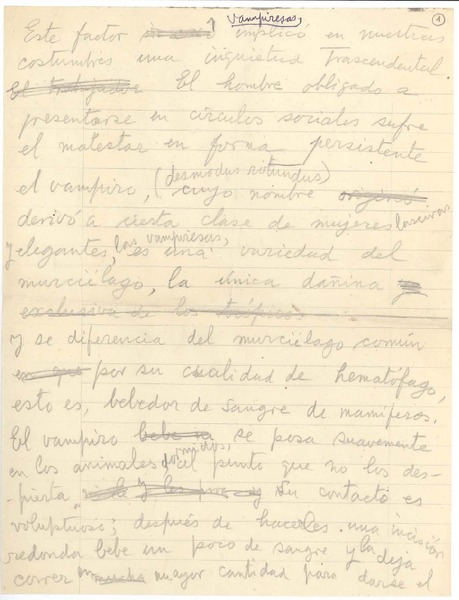 vampiresas, 1
Este factor implicó en nuestras
costumbres una inquietud Trascendental.
El trabajador El hombre obligado a
presentarse en círculos sociales sufre
el malestar en forma persistente
(desmodus rotundus)
el vampiro, cuyo nombre originó
derivó a cierta clase de mujeres lascivas
y elegantes, las vampiresas, es una variedad del
murciélago, la única dañina y
exclusiva de los trópicos
y se diferencia del murciélago común
en que por su cualidad de hematófago,
esto es, bebedor de sangre de mamíferos.
El vampiro bebe la se posa suavemente
en los animales dormidos, al punto que no los des-
-pierta, Su contacto es
voluptuoso; después de hacerles una incisión
redonda bebe un poco de sangre y la deja
correr en mucha mayor cantidad para darse el